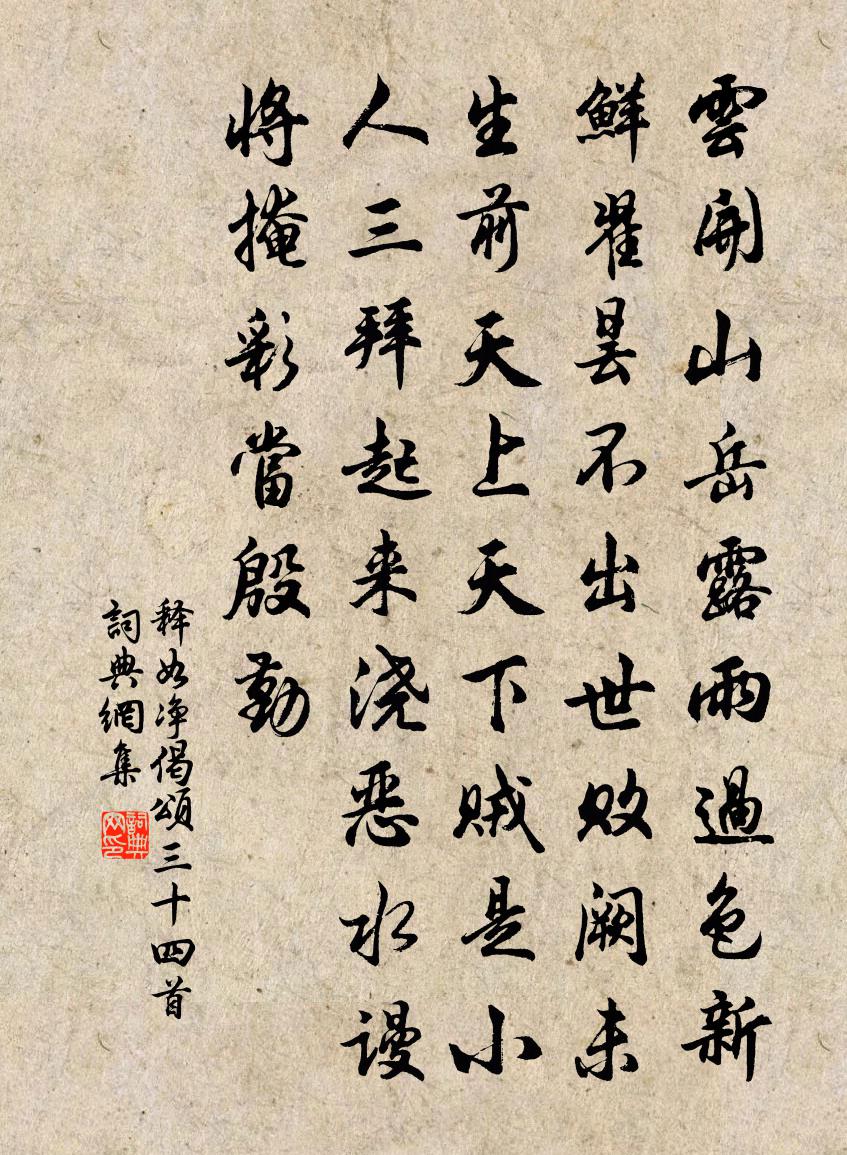 雲開山岳露雨過色新
鮮瞿曇不出世敗闕未
生前天上天下賊是小
人三拜起来浇恶水謾
將掩彩當殷勤
释如净偈頌三十四首
詞典網集
詞典网印